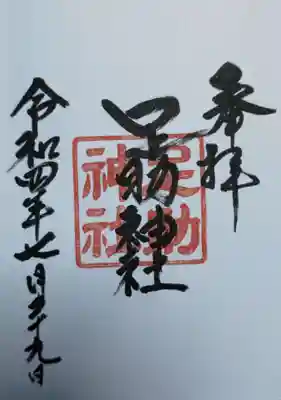 奉拝
足助神社
足助
神社
令和四年七月二十九日